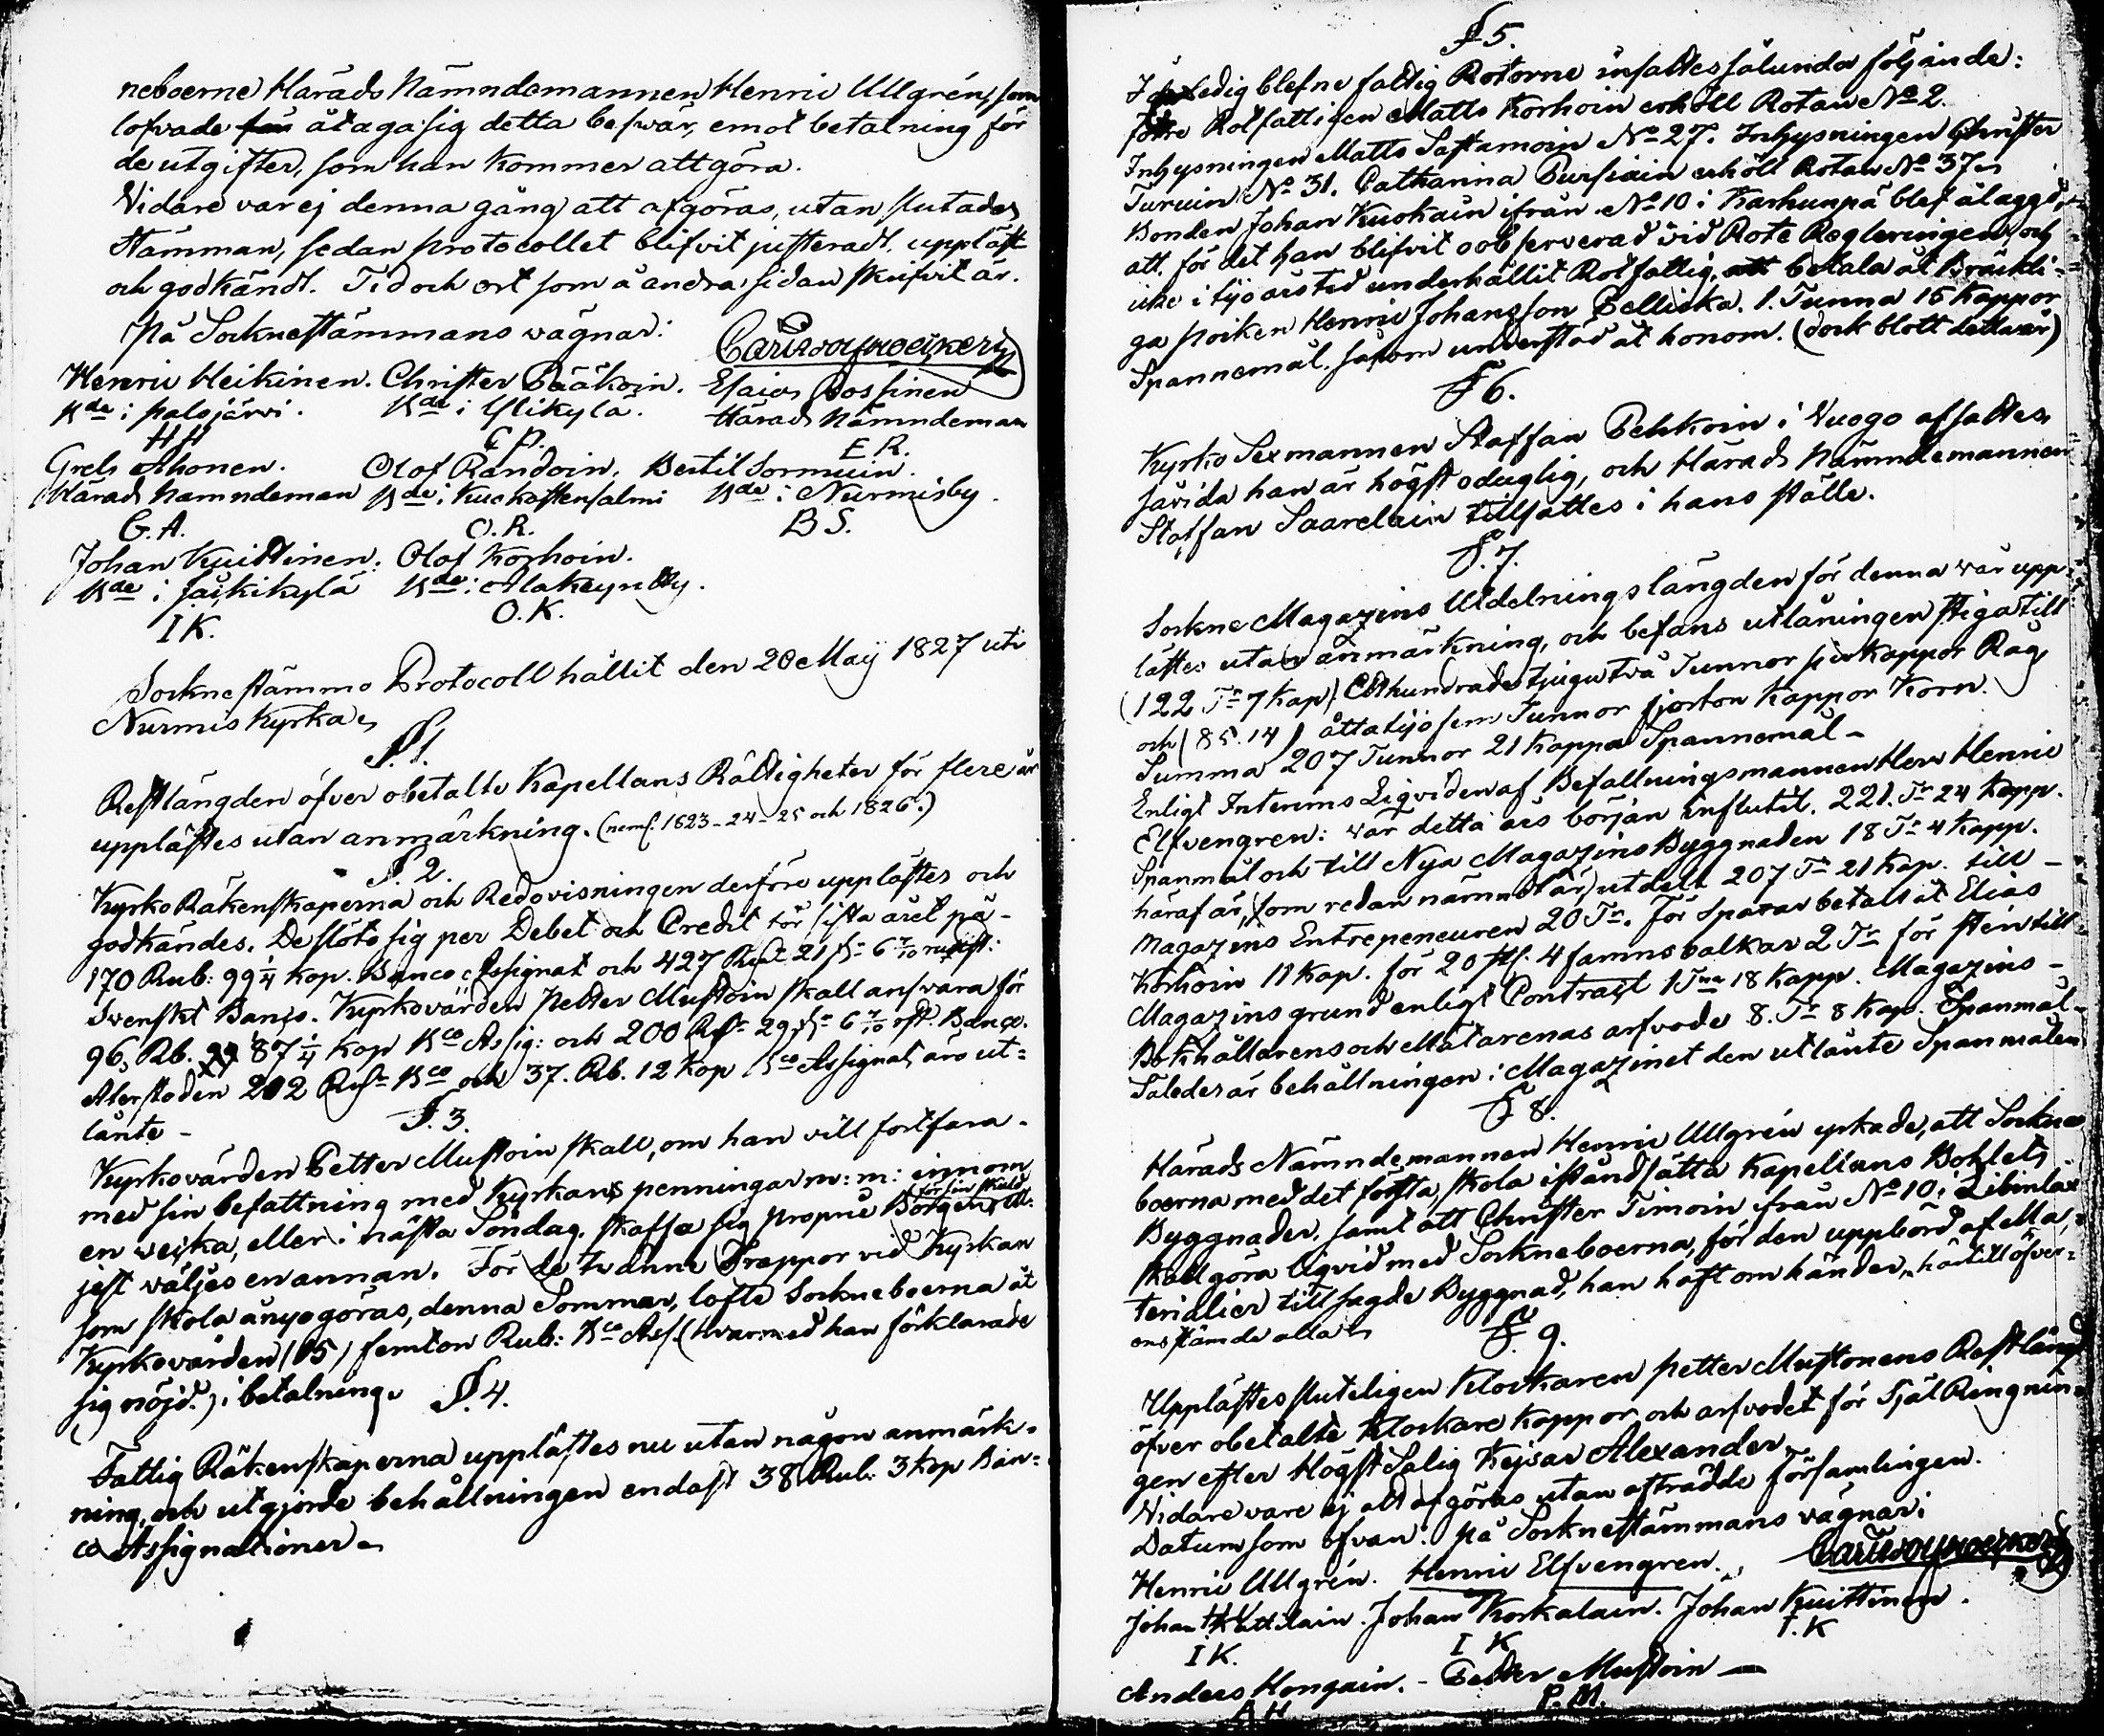 neboerne Härads Nämndemannen Henric Ullgrén, som
lofvade åtaga sig detta besvär, emot betalning för
de utgifter, som han kommer att göra.
Vidare var ej denna gång att afgöras, utan slutades
Stämman, sedan protocollet blifvit justeradt, uppläst
och godkändt. Tid och ort som å andra sidan skrifvit är.
På Socknestämmans vägnar:
Henric Heikinen. Christer Pääkoin. Esaias Rossinen
Bde i palojärvi. Bde i Ylikylä. Härads Nämndeman
HH C P. E R.
Grels Ahonen. Olof Randoin. Bertil Sormuin.
Härads Nämndeman Bde i Kuohattensalmi Bde i Nurmisby.
G. A. O. R. B S.
Johan Kuittinen. Olof Korhoin.
Bde i Sarkikylä Bde i
I K. O. K.
Sockne stämmo Protocoll hållit den 20 Maij 1827 uti
Nurmis Kyrka
§. 1.
Restlängden öfver obetalte Kapellans Rättigheter för flere år
upplästes utan anmärkning. (neml. 1823-24-25 och 1826.)
§. 2.
Kyrko Räkenskaperna och Redovisningen derföre upplästes och
godkändes. De slöto sig per Debet och Credit för sista året på-
170 Rub: 99 1/4 kop. Banco Assignat och 427 Rdr 21 s. 6 7/10 rst.
Svenskt Banco. Kyrkovärden Petter Mustoin skall ansvara för
96, Rb. 87 1/4 kop Bco Assig: och 200 Rdr 29 s. 6 7/10 rst. Banco.
Återstoden 202 Rdr Bco och 37. Rb. 12 kop Bco Assignat äro ut-
lånte -
§. 3.
Kyrkovärden Petter Mustoin skall, om han vill fortfara
med sin befattning med Kyrkans penningar m: m: innom
en vecka, eller i nästa Söndag, skaffa sig proprie Borgen för sin skuld,
jest väljes en annan. För de tvänne Trappor vid Kyrkan
som skola å nyo göras, denna Sommar, lofte Sockneboerna åt
Kyrkovärden (15) femton Rub: Bco Ass. (hvarmed han förklarade
sig nöjd.) i betalning.
§. 4.
Fattig Räkenskaperna upplästes nu utan någon anmärk-
ning, och utgjorde behållningen endast 38 Rub: 3 kop Ban-
co Assignationer
§ 5.
ledig blefne fattig Rotorne insattes sålunda följande:
Rotfattigen Matts Korhoin erhöll Rotan No 2.
Inhysningen Matts Sastamoin No 27. Inhysningen Christer
Turuin No 31. Catharina Pursiain erhöll Rotan No 37
Bonden Johan Kuokain ifrån No 10 i Karhunpä blef ålaggd,
att, för det han blifvit oobserverad vid Rote Regleringen, och
icke i tjo års tid underhållit Rotfattig, betala åt Bräckli-
ga poiken Henric Johansson Pellicka. 1. Tunna 15 Kappor
Spannemål, såsom understöd åt honom. (dock blott detta år)
§ 6.
Kyrko Sexmannen Staffan Pehkoin i Vuogo afsattes
såvida han är högst oduglig, och Härads Nämndemannen
Staffan Saarelain tillsattes i hans ställe.
§. 7.
Sockne Magazins Utdelningslängden för denna vår upp-
lästes utan anmärkning, och befans utlåningen stiga till
(122 Tr 7 Kap) Etthundrade tjugutvå Tunnor sju kappor Råg
och (85. 14) åttatijo fem Tunnor fjorton Kappor Korn.
Summa 207 Tunnor 21 Kappa Spannemål -
Enligt Interims Liqviden af Befallningsmannen Herr Henric
Elfvengren: var detta års början influtit, 221. Tr 24 Kapp.
Spanmål och till Nya Magazins Byggnaden 18 Tr 4 Kapp.
häraf är, som redan nämndt är, utdelt 207 Tr 21 Kap. till -
Magazins Entrepeneuren 20 Tr. För Sparar betalt åt Elias
Korhoin 11 Kap. för 20 st. 4 famns balkar 2 Tr för sten till
Magazins grund enligt Contract 1 Tna 18 Kapp. Magazins -
Bokhållarens och Mätarenas arfvode 8. Tr 8 Kap. Spanmål -
Således är behållningen i Magazinet den utlånte Spanmålen
§ 8.
Härads Nämndemannen Henric Ullgrén yrkade, att Sockne
boerna med det första, skola iståndsätta Kapellans Bohlets
Byggnader, samt att Christer Timoin ifrån No 10 i Libinlax
skall göra liqvid med Sockneboerna, för den uppbörd af Ma-
terialier till sagde Byggnad, han haft om händer, härtill öfver-
ens stämde alla
§. 9.
Upplästes sluteligen Klockaren Petter Mustonens Restlängd
öfver obetalte Klockare Kappor och arfvodet för Själ Ringnin-
gen efter Högst Salig Kejsar Alexander
Vidare vare ej att afgöras utan afträdde församlingen.
Datum som ofvan: På Socknestämmans vägnar:
Henric Ullgrén. Henric Elfvengren.
Johan Kettulain. Johan Korkalain. Johan Kuittinen.
I K. I K I. K
Anders Hongain. - Petter Mustoin -
A H P. M.